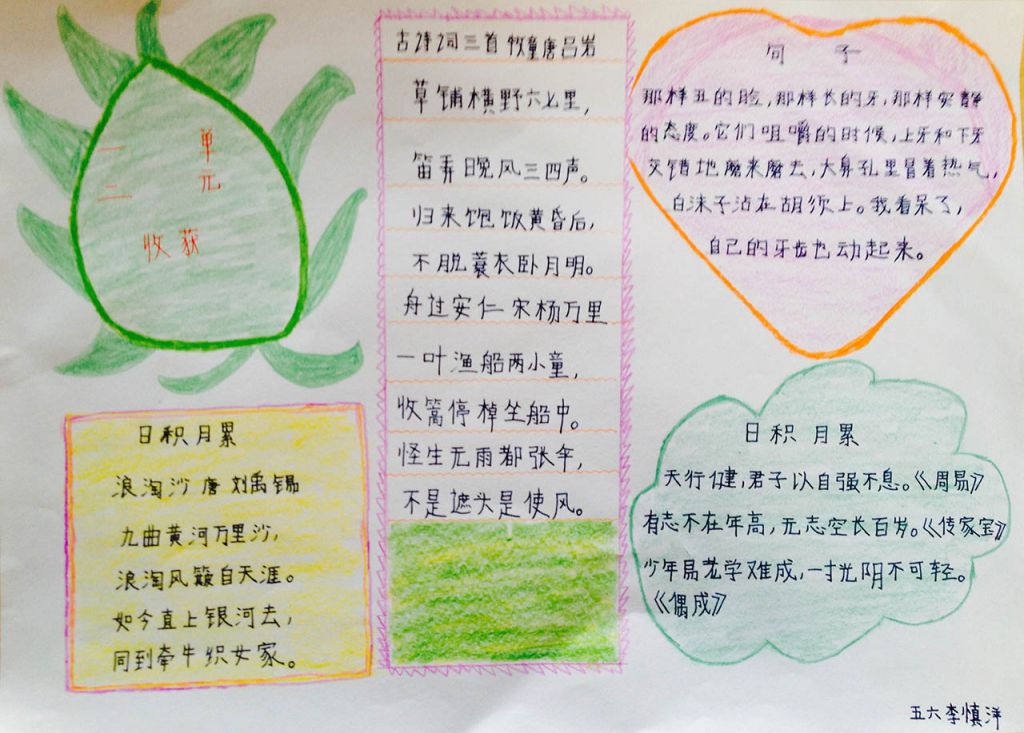 一 单
二 元
收获
古诗词三首 牧童唐吕岩
草铺横野六七里,
笛弄晚风三四声。
归来饱饭黄昏后,
不脱蓑衣卧月明。
舟过安仁 宋杨万里
一叶渔船两小童,
收篙停棹坐船中。
怪生无雨都张伞,
不是遮头是使风。
句 子
那样丑的脸,那样长的牙,那样安静
的态度。它们咀嚼的时候,上牙和下牙
交错地磨来磨去,大鼻孔里冒着热气,
白沫子沾在胡须上。我看呆了,
自己的牙齿也动起来。
日积月累
浪淘沙 唐 刘禹锡
九曲黄河万里沙,
浪淘风簸自天涯。
如今直上银河去,
同到牵牛织女家。
日积月累
天行健,君子以自强不息。《周易》
有志不在年高,无志空长百岁。《传家宝》
少年易老学难成,一寸光阴不可轻。
《偶成》
五六李慎洋